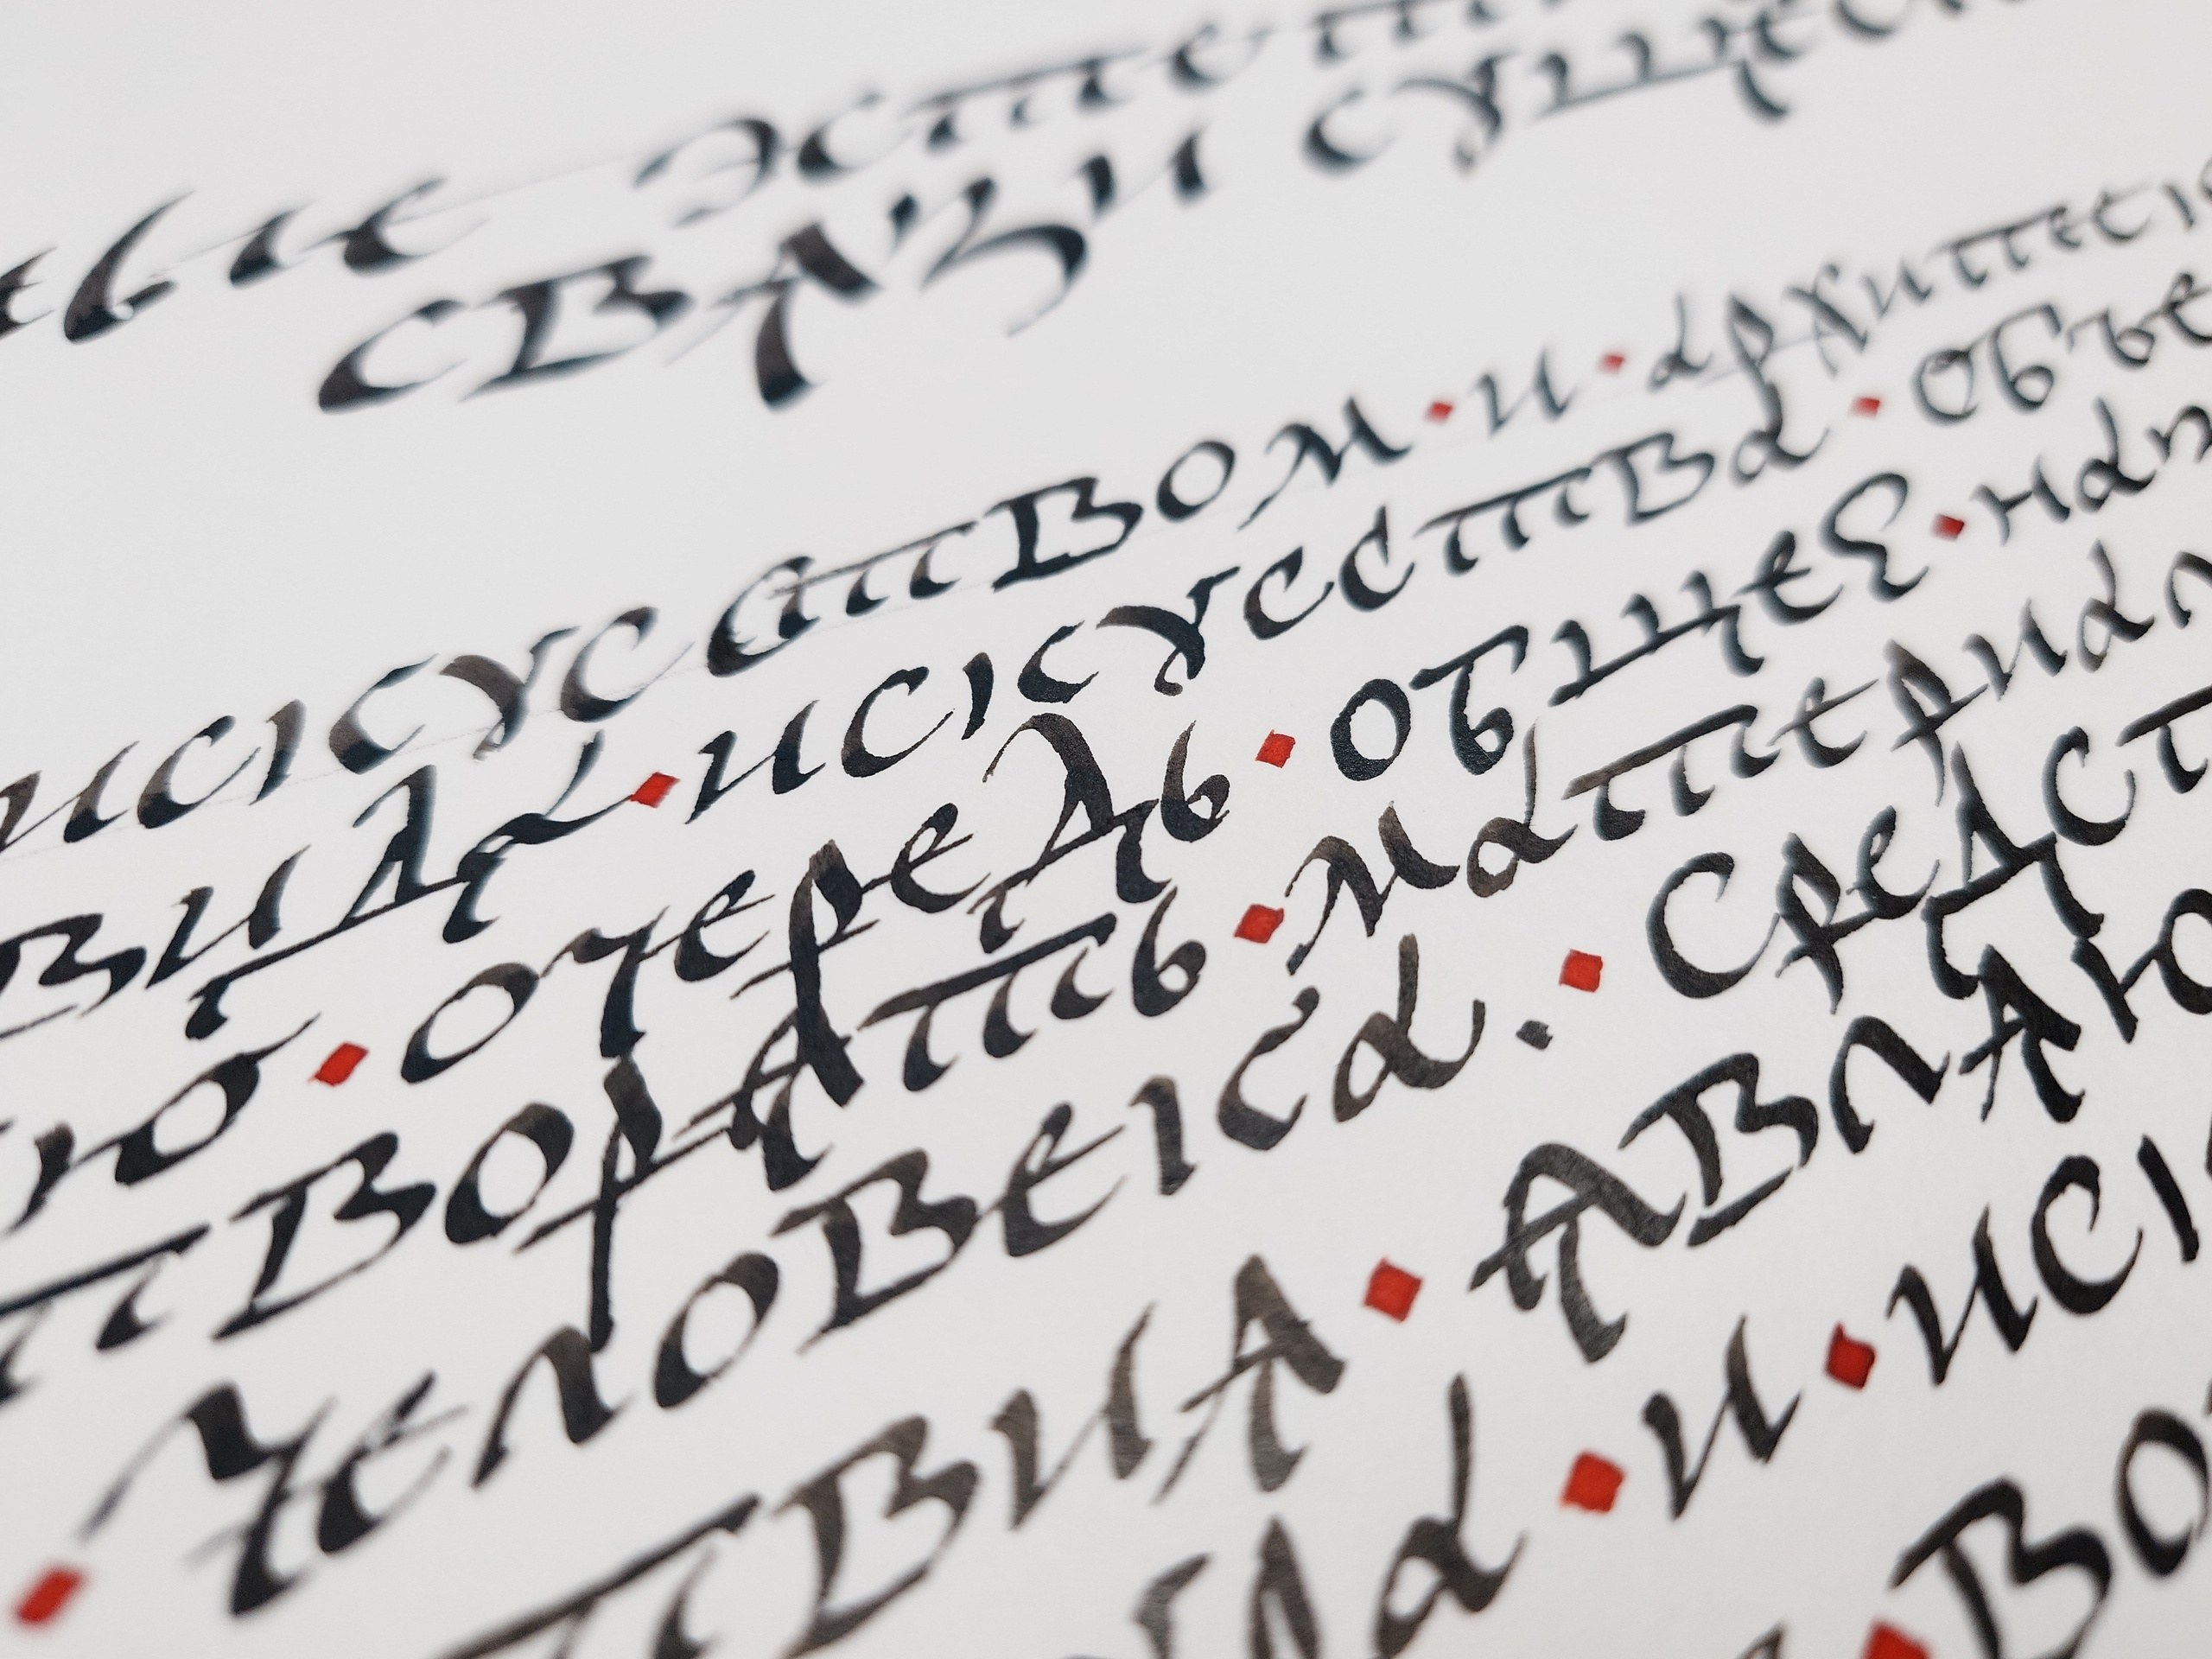 ые эстет
связи сущес
искусством·и·архитек
вида·искусства·объе
ю·очередь·общее·нап
творять·материал
·человека.·Средст
твия·являю
а·и·иск
·во